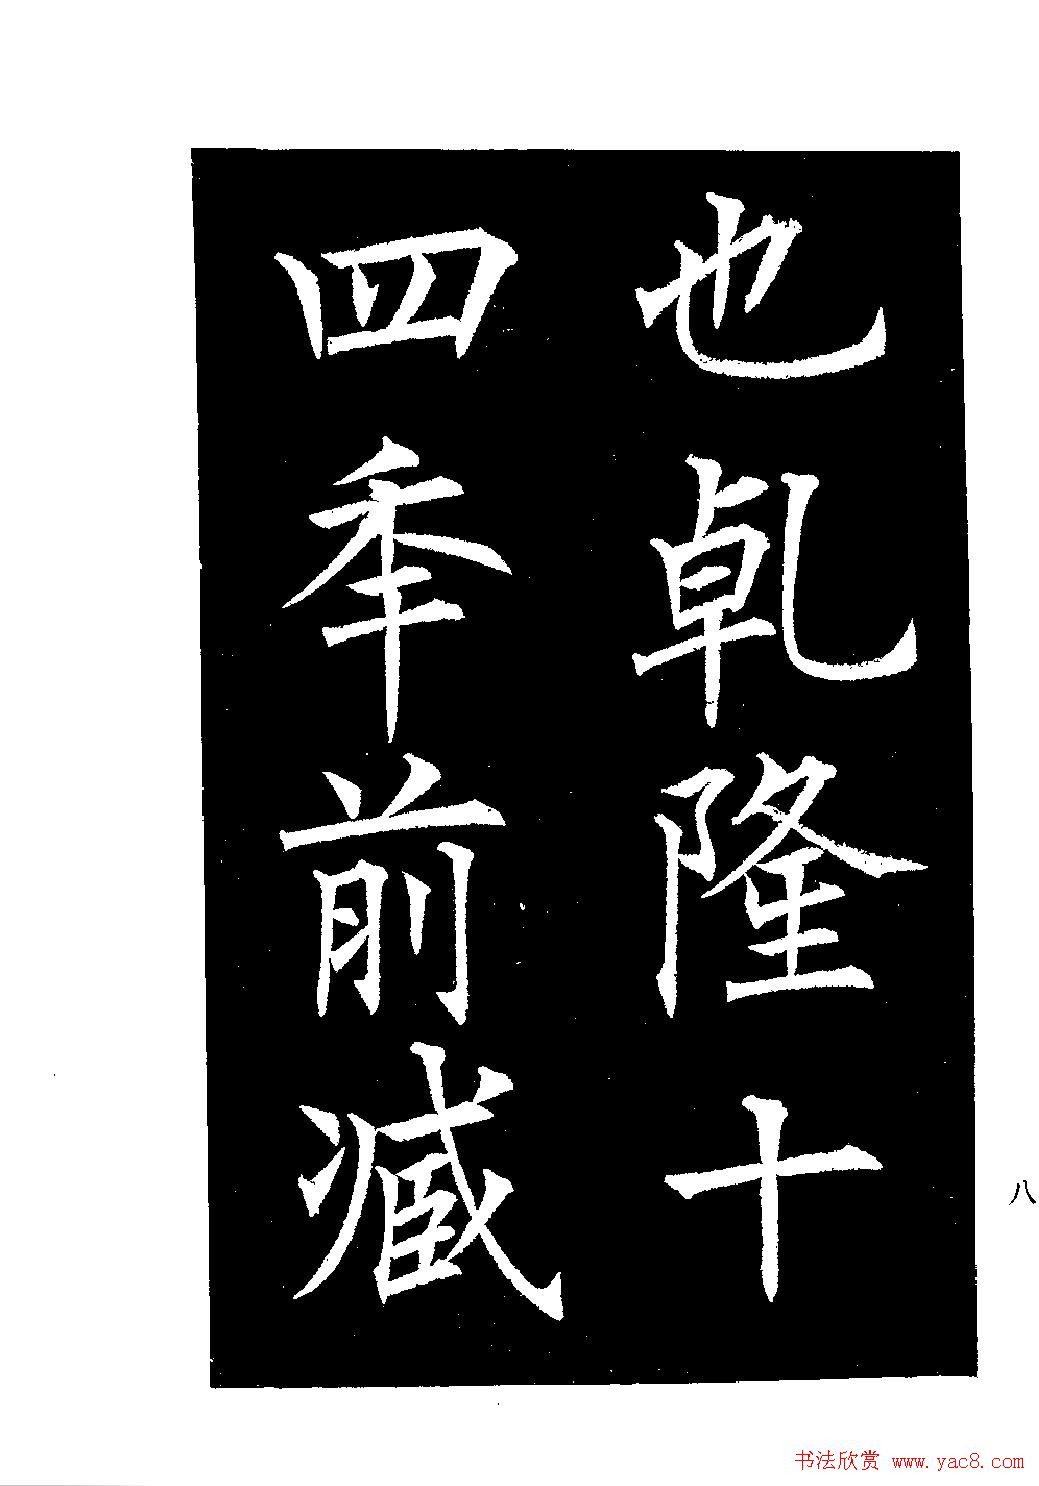 也乹隆十
四秊前臧
八
书法欣赏 www.yac8.com